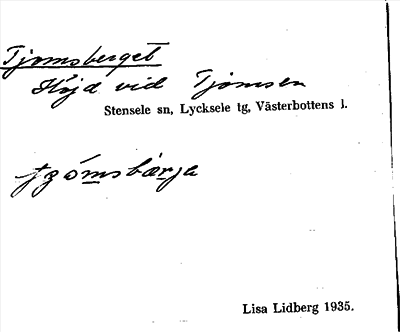 Tjomsberget
Höjd vid Tjömsen
Stensele sn, Lycksele tg, Västerbottens l.
Lisa Lidberg 1935.